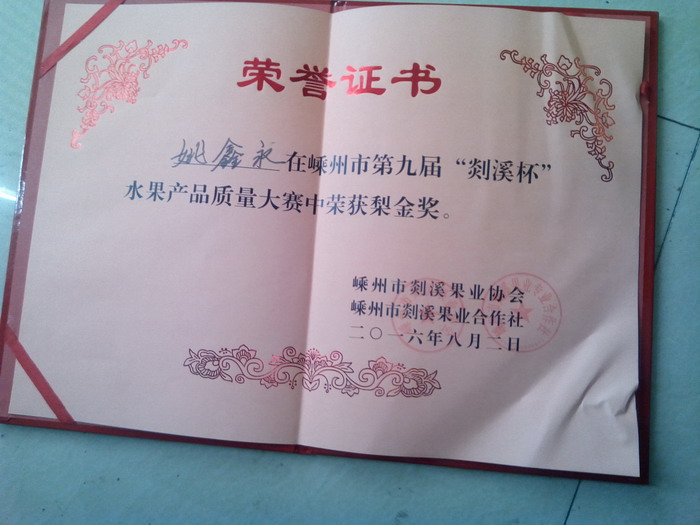 荣誉证书
姚鑫永在嵊州市第九届“剡溪杯”
水果产品质量大赛中荣获梨金奖。
嵊州市剡溪果业协会
嵊州市剡溪果业合作社
二〇一六年八月二日